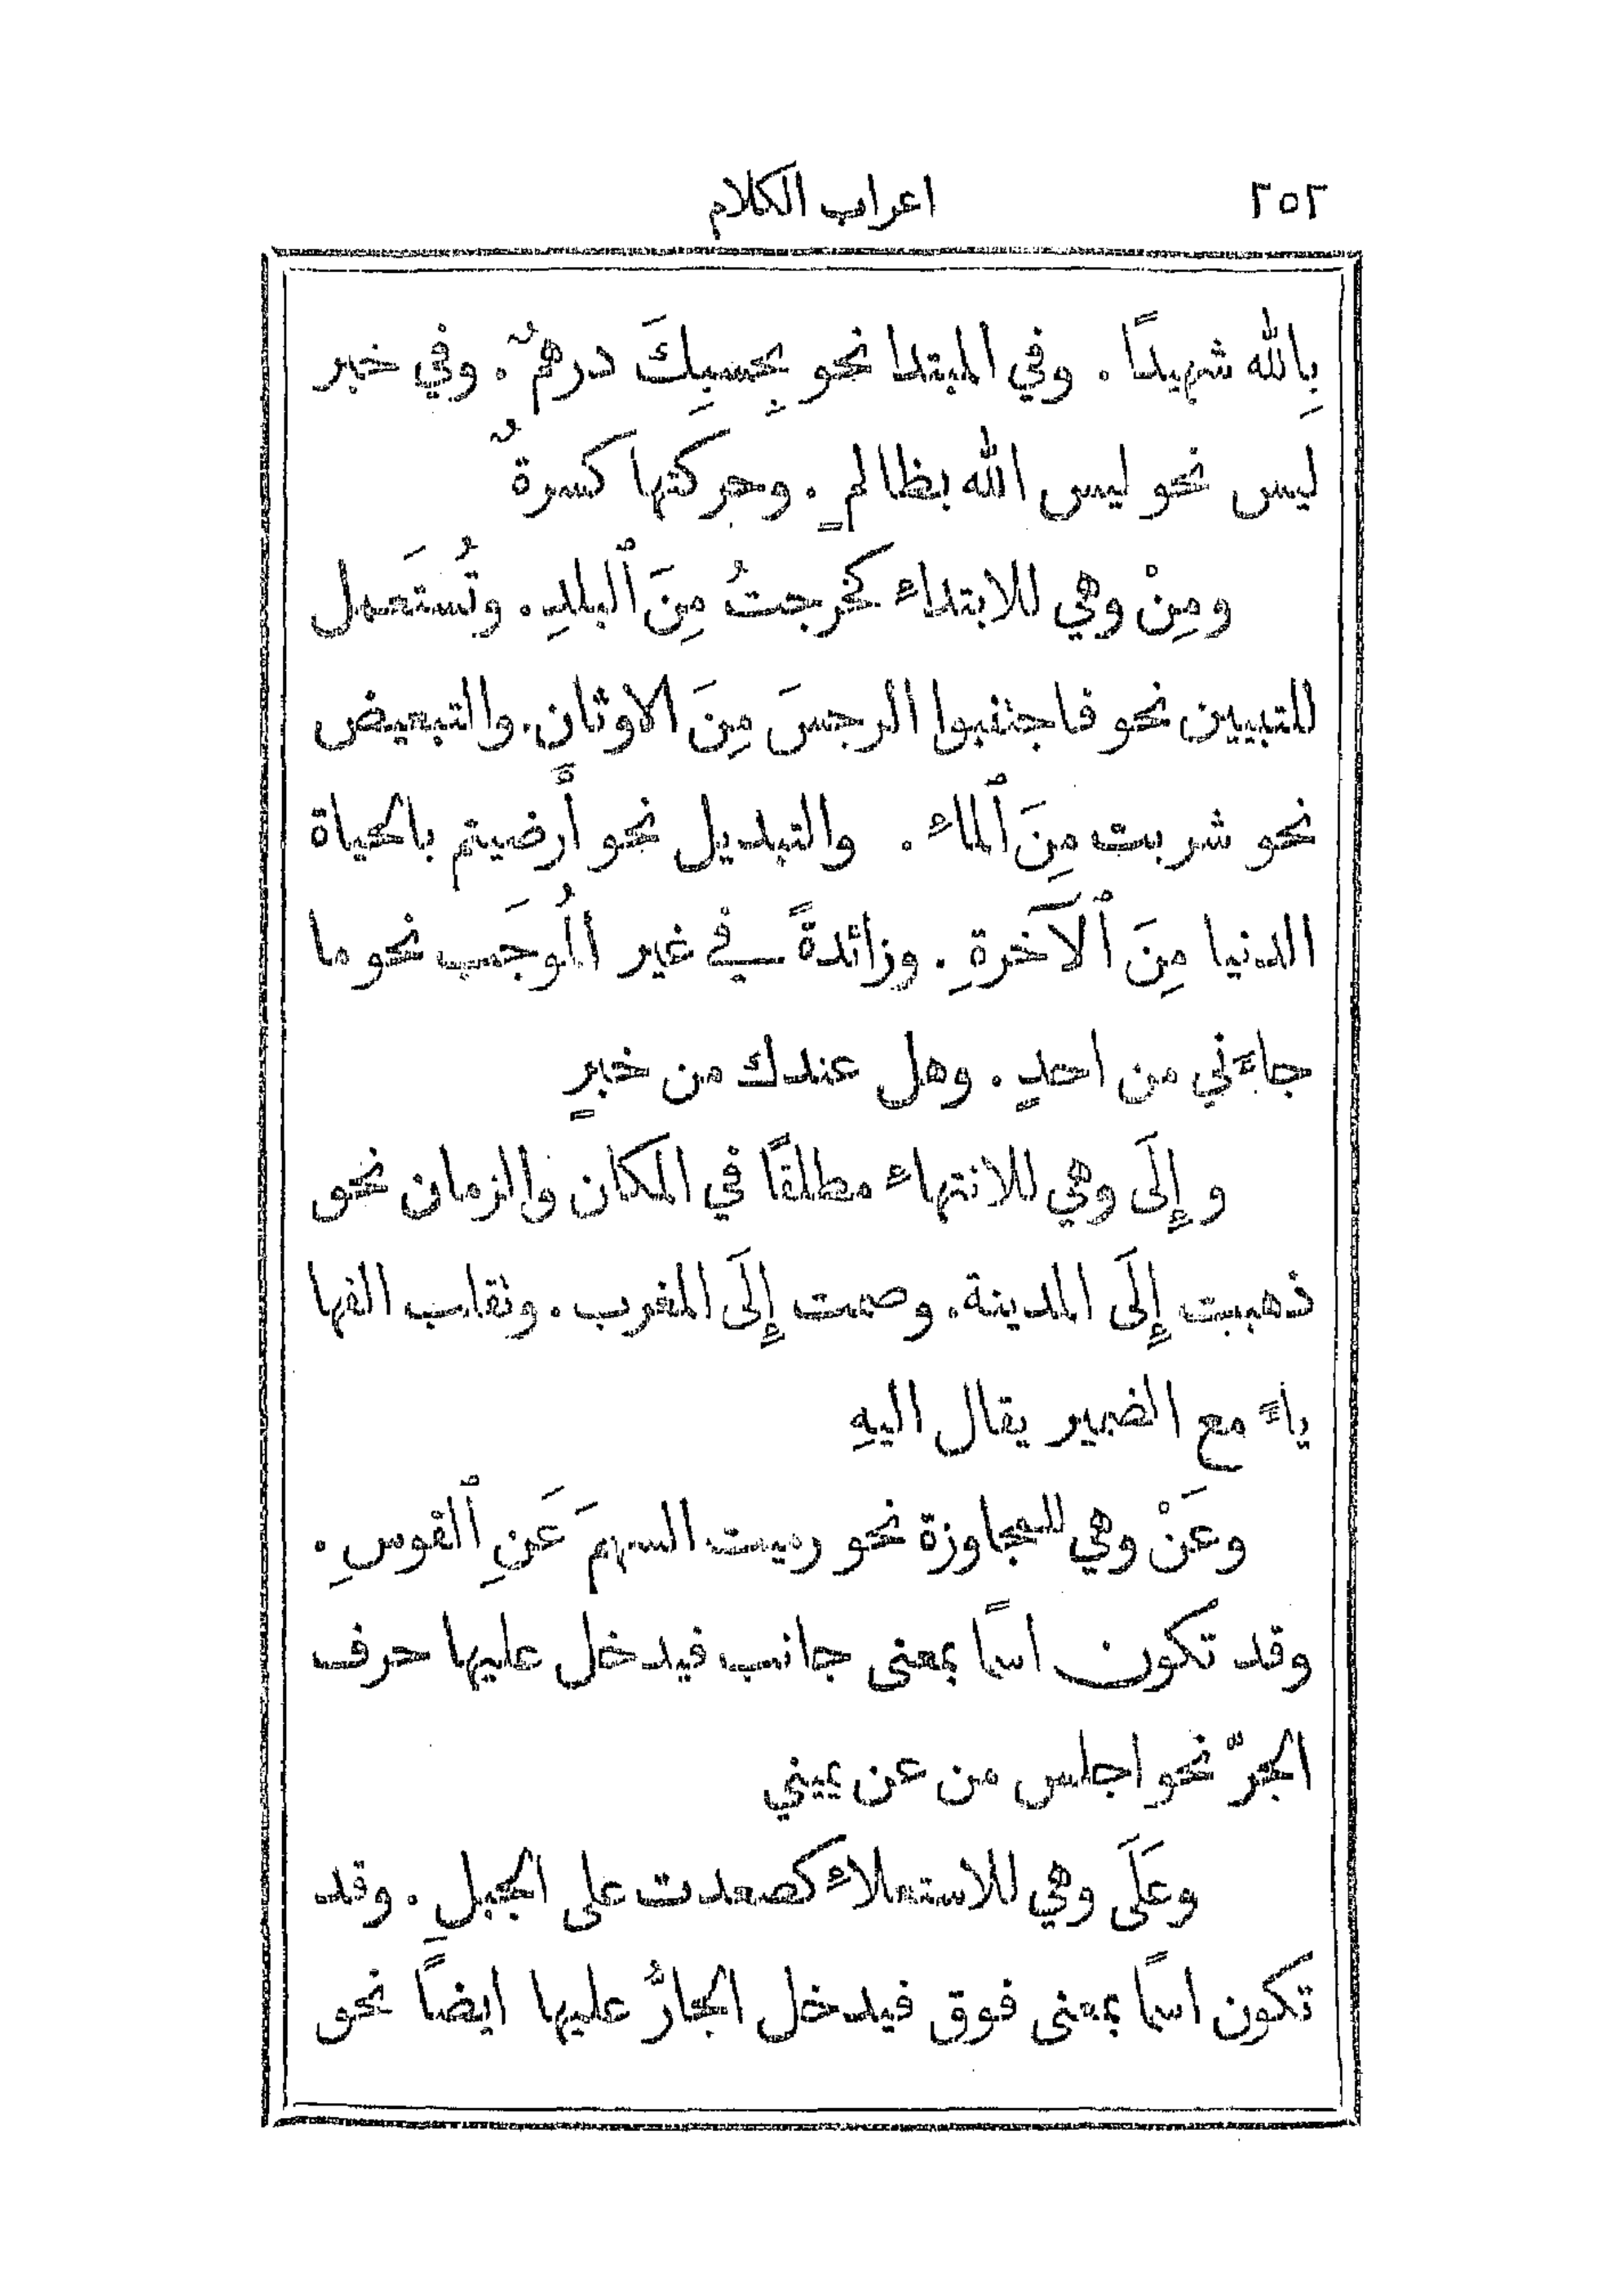 ٢٥٢
اعراب الكلام
بِالله شهيدًا . وفي المبتدا نحو بِحسبِكَ درهمٌ . وفي خبر
ليس نحو ليس الله بظالمٍ . وحركتها كسرةٌ
ومِنْ وهي للابتداء كخرجتُ مِنَ ٱلبلدِ . وتُستَعمل
للتبيين نحو فاجتنبوا الرجسَ مِنَ الاوثان . والتبعيض
نحو شربت مِنَ ٱلماء . والتبديل نحو أَرضيتم بالحياة
الدنيا مِنَ ٱلآخرةِ . وزائدةً في غير المُوجَب نحو ما
جاءَني من احدٍ . وهل عندك من خبرٍ
وإِلَى وهي للانتهاء مطلقًا في المكان والزمان نحو
ذهبت إِلَى المدينة . وصمت إِلَى المغرب . ونقلب الفها
ياءً مع الضمير يقال اليهِ
وعَنْ وهي للمجاوزة نحو رميت السهمَ عَنِ ٱلقوسِ .
وقد تكون اسمًا بمعنى جانب فيدخل عليها حرف
الجرّ نحو اجلس من عن يميني
وعَلَى وهي للاستعلاء كصعدت على الجبلِ . وقد
تكون اسمًا بمعنى فوق فيدخل الجارُّ عليها ايضًا نحو